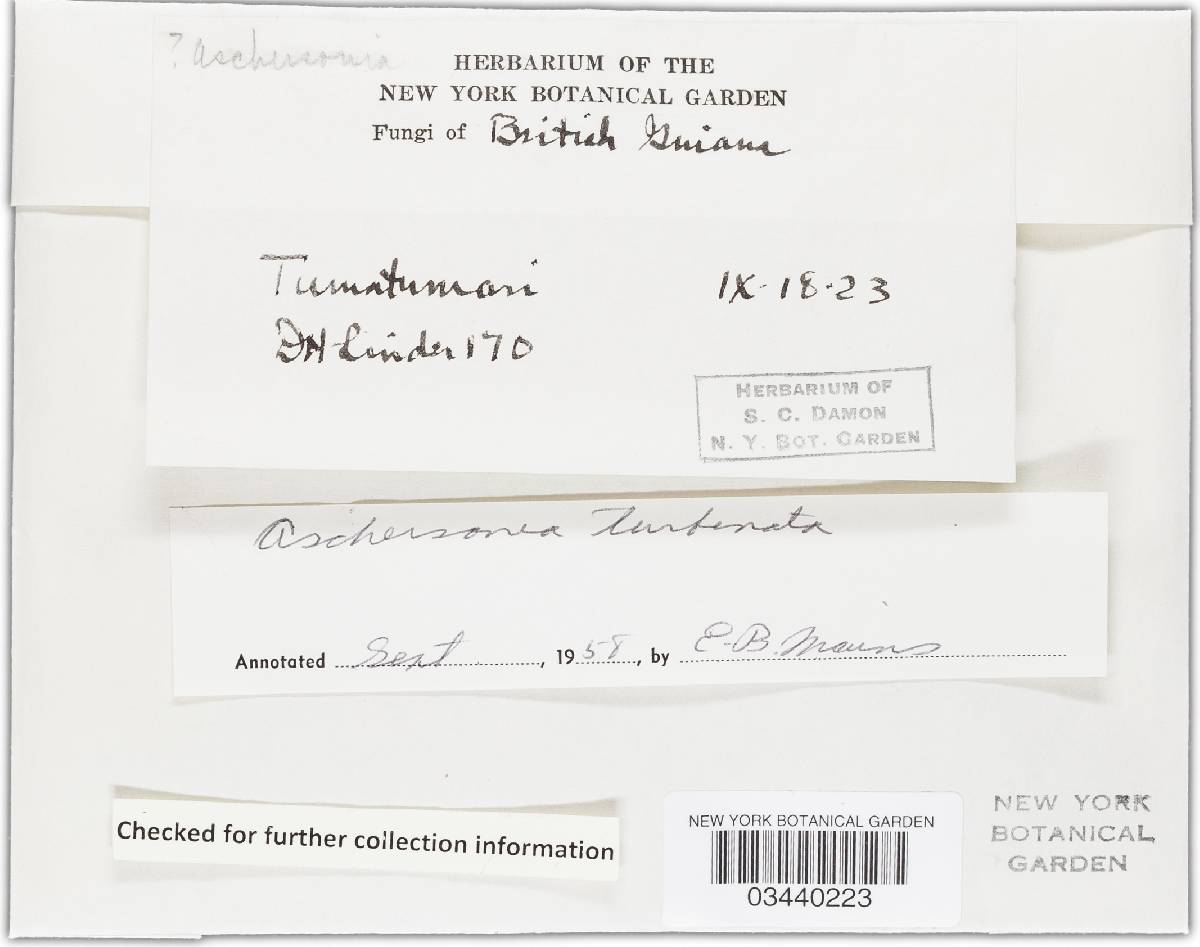 ? Aschersonia
HERBARIUM OF THE
NEW YORK BOTANICAL GARDEN
Fungi of British Guiana
Tumatumari IX-18-23
DH Linder 170
HERBARIUM OF
S. C. DAMON
N. Y. BOT. GARDEN
Aschersonia turbinata
Annotated Sept., 1958, by E.B. Mains
Checked for further collection information
NEW YORK BOTANICAL GARDEN
03440223
NEW YORK
BOTANICAL
GARDEN